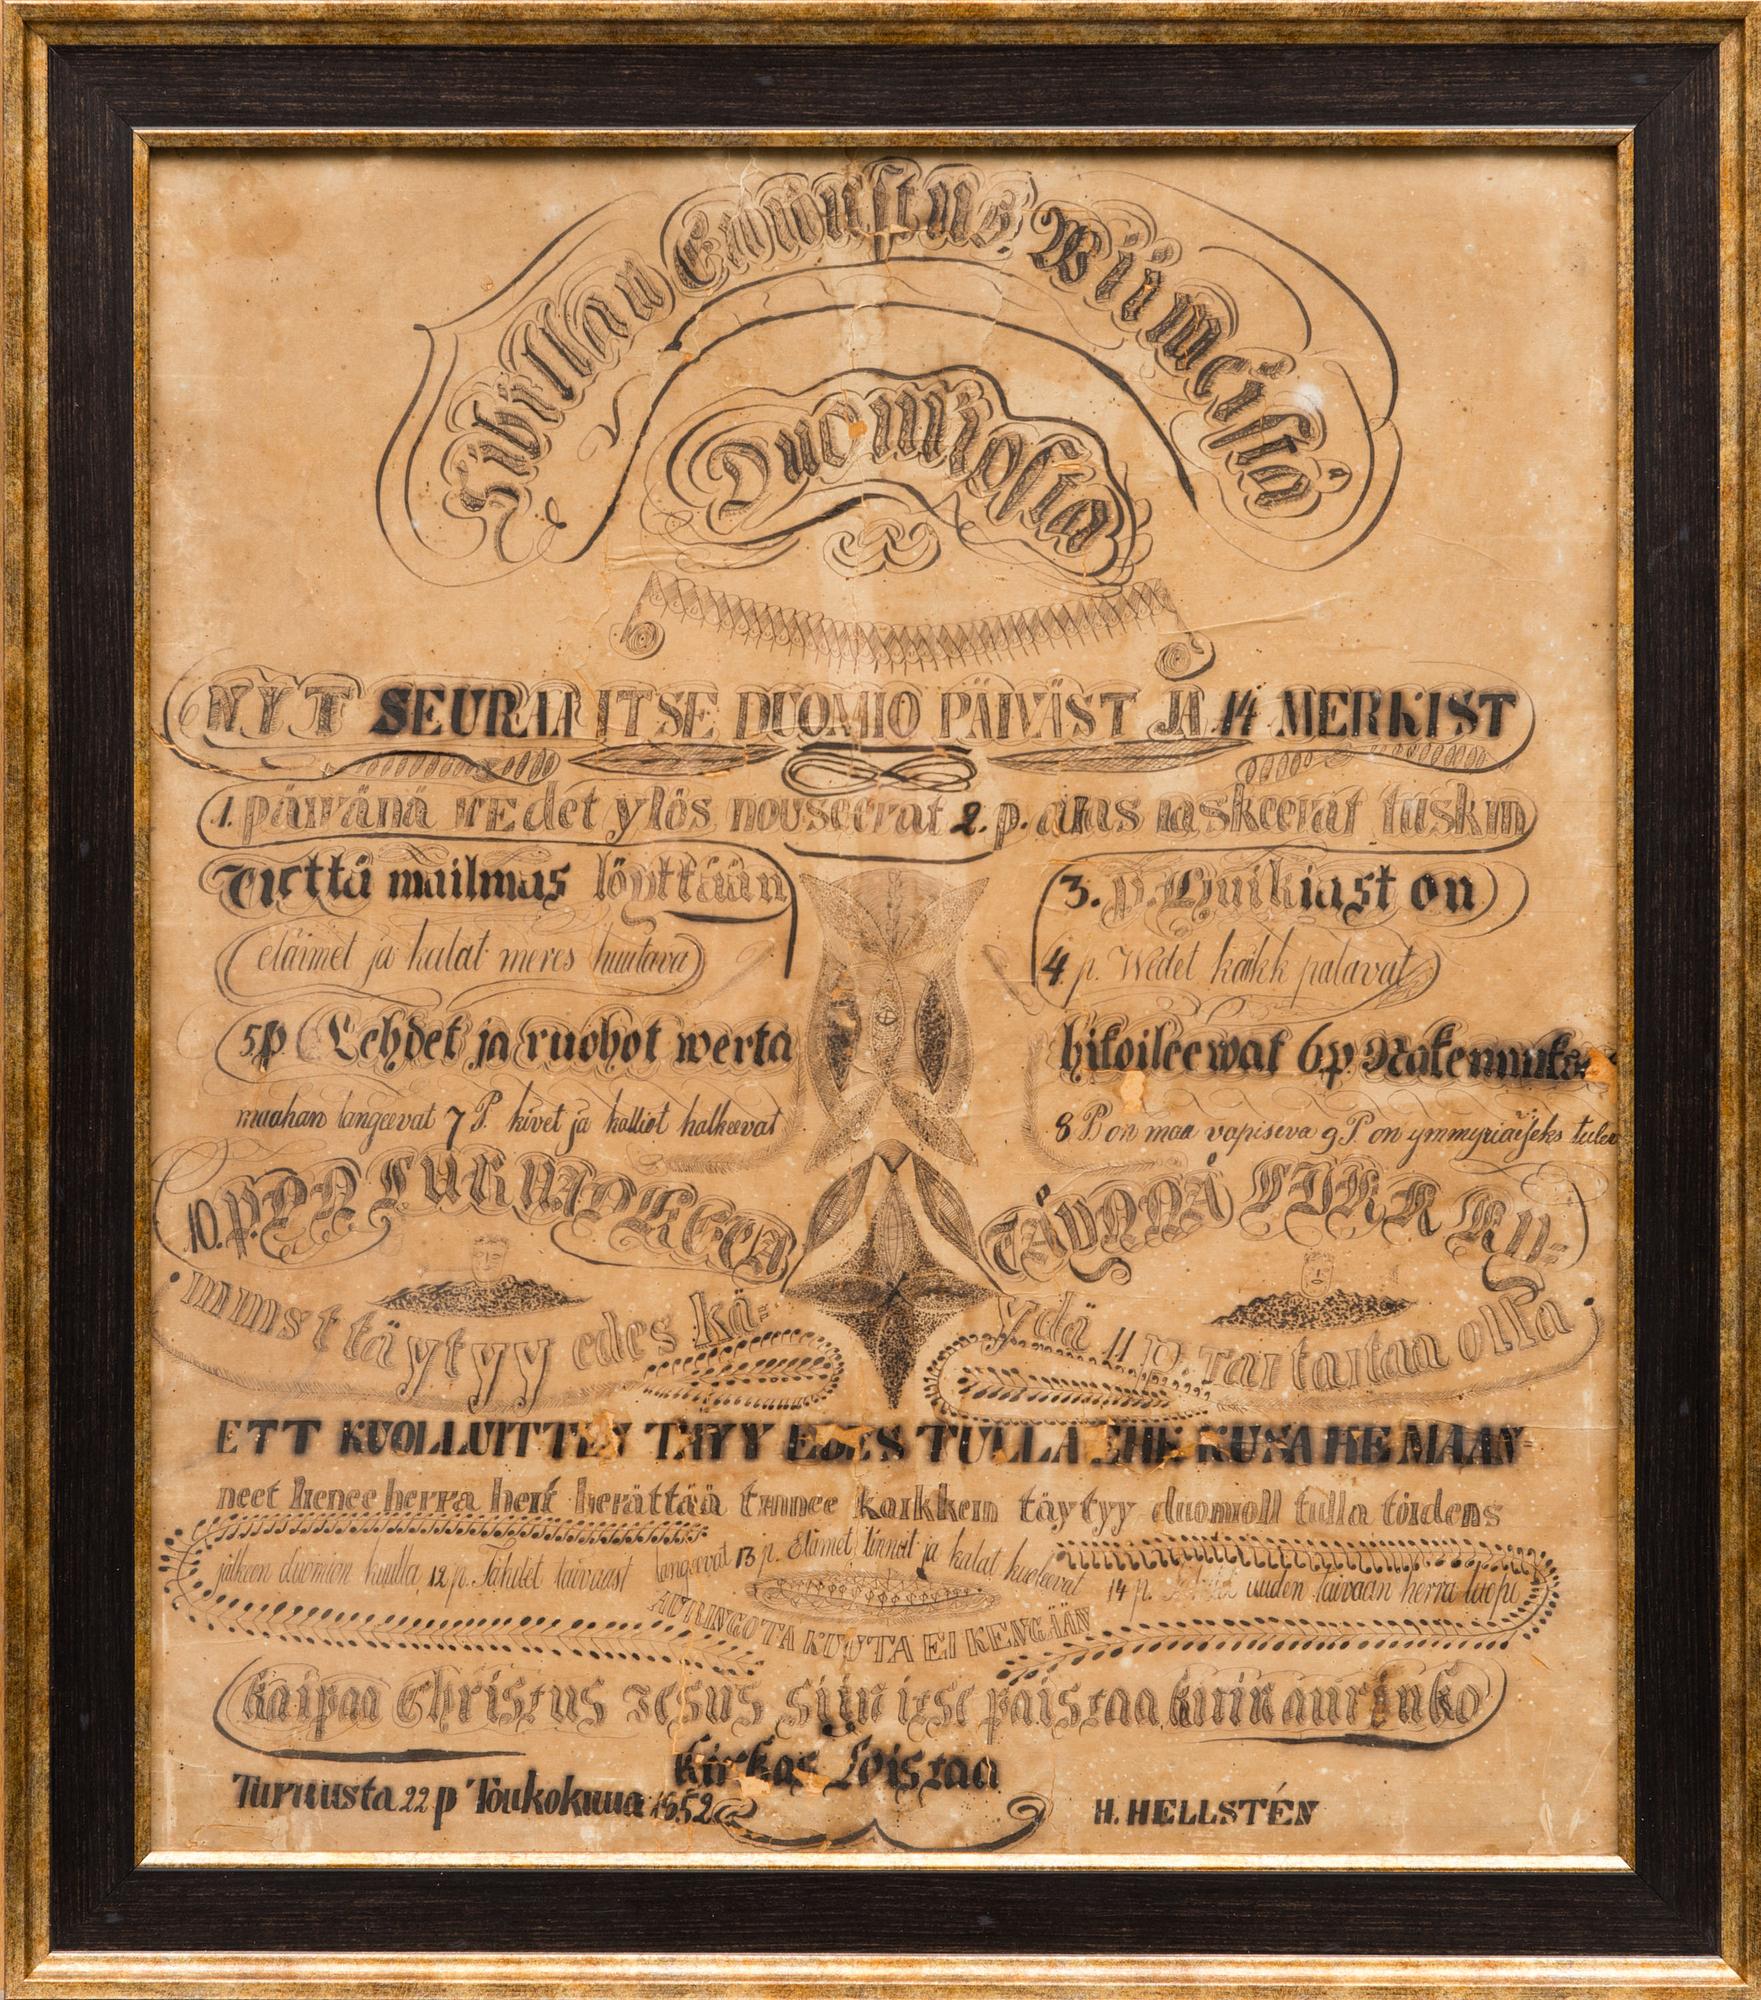 Sibillan Ennustus Wiimeisestä
Duomiosta
NYT SEURAA ITSE DUOMIO PÄIVÄST JA 14 MERKIST
1. päivänä vedet ylös nouseevat 2. p. alas laskeevat tuskin
vettä mailmas löyttään
3. p. Quikiast on
eläimet ja kalat meres huutava
4 p. Wedet kaikk palavat
5p Lehdet ja ruohot werta
hikoileewat 6p Rakennuks
maahan langeevat 7 P. kivet ja kalliot halkeevat
8 P on maa vapiseva 9 P. on ymmyriäiseks tuleva
10. P. ON TURVADKEEA
TÄYNNÄ KIRK KU=
mmst täytyy edes kä=
ydä 11 p. Tai taitaa olla
ETT KUOLLUITTEN TÄYY EDES TULLA EHK KUNA HE MAAN=
neet lienee herra heit herättää tunnee kaikkein täytyy duomioll tulla töidens
jälkeen duomion kuulla 12 p. Tähdet taivaast langeevat 13 p. Elämet linnut ja kalat kuoleevat 14 p. uuden taivaan herra luopi
AURINGOTA KUUTA EI KENGÄÄN
kaipaa Christus Jesus siin itse paistaa kuin aurinko
Kirkas Loistaa
Turuusta 22 p Toukokuua 1852
H. HELLSTÉN